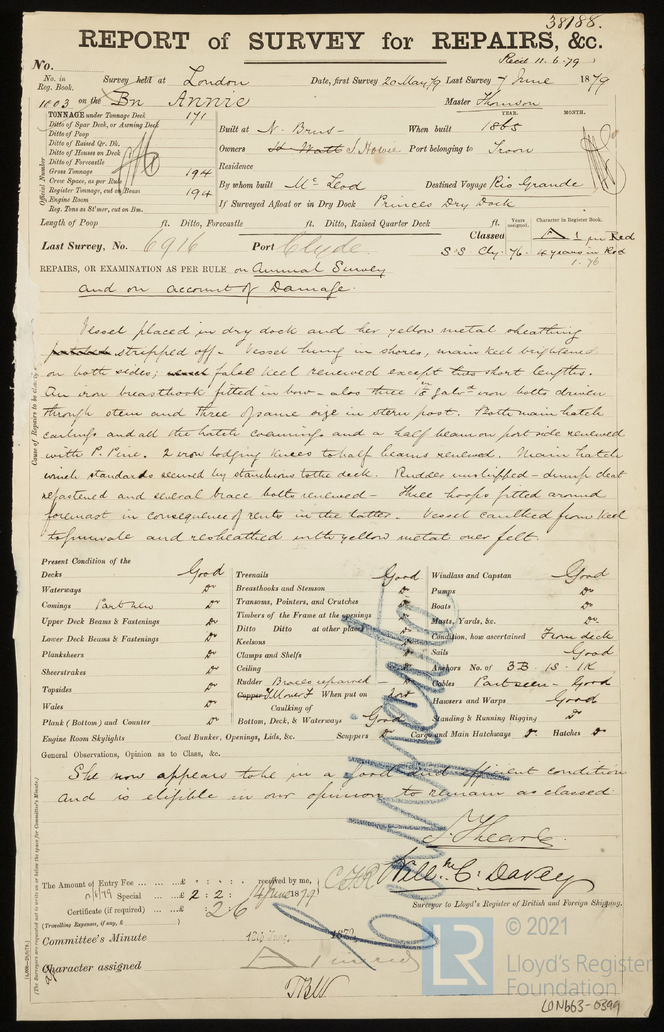 38188.
REPORT of SURVEY for REPAIRS, &c.
Recd 11.6.79
No.
No. in Reg. Book. Survey held at London Date, first Survey 20 May /79 Last Survey 7 June 1879
1003 on the Bn Annie Master Thomson
TONNAGE under Tonnage Deck 171
YEAR. MONTH.
Ditto of Spar Deck, or Awning Deck
Ditto of Poop
Ditto of Raised Qr. Dk.
Ditto of Houses on Deck
Ditto of Forecastle
Gross Tonnage 194
Crew Space, as per Rule
Register Tonnage, cut on Beam 194
Engine Room
Reg. Tons as St'mer, cut on Bm.
Official Number
Built at N. Bruns- When built 1865
Owners St Watt J Howie Port belonging to Troon
Residence
By whom built McLeod Destined Voyage Rio Grande
If Surveyed Afloat or in Dry Dock Princes Dry Dock
Length of Poop ft. Ditto, Forecastle ft. Ditto, Raised Quarter Deck ft.
Years assigned. Character in Register Book.
Last Survey, No. 6916 Port Clyde. Classed A 1 in Red
S.S. Cly. 76. 4 years in Red
1.76
REPAIRS, OR EXAMINATION AS PER RULE on Annual Survey
and on account of Damage.
Vessel placed in dry dock and her yellow metal sheathing
stripped off - Vessel hung in shores, main keel brightened
on both sides; false keel renewed except two short lengths.
An iron breasthook fitted in bow - also three galvd iron bolts driven
through stem and three of same size in stern post. Both main hatch
carlings and all the hatch coamings and a half beam on port side renewed
with P. Pine. 2 iron lodging knees to half beams renewed. Main hatch
winch standards secured by stanchions to the deck. Rudder unshipped - dump cleat
refastened and several brace bolts renewed - Three hoops fitted around
foremast in consequence of rents in the latter. Vessel caulked from keel
to gunwale and resheathed with yellow metal over felt.
Present Condition of the
Decks Good
Waterways Do
Comings Part new Do
Upper Deck Beams & Fastenings Do
Lower Deck Beams & Fastenings Do
Planksheers Do
Sheerstrakes Do
Topsides Do
Wales Do
Plank (Bottom) and Counter Do
Engine Room Skylights
Treenails Good
Breasthooks and Stemson Do
Transoms, Pointers, and Crutches Do
Timbers of the Frame at the openings Do
Ditto Ditto at other places
Keelsons
Clamps and Shelfs
Ceiling
Rudder Braces repaired
Copper Y Mover F When put on
Caulking of
Bottom, Deck, & Waterways Good
Coal Bunker, Openings, Lids, &c. Scuppers Do
Windlass and Capstan Good
Pumps Do
Boats Do
Masts, Yards, &c. Do
Condition, how ascertained From deck
Sails Good
Anchors No. of 3B. 1S. 1K
Cables Part seen - Good
Hawsers and Warps Good
Standing & Running Rigging Do
Cargo and Main Hatchways Do Hatches Do
General Observations, Opinion as to Class, &c.
She now appears to be in a good and efficient condition
and is eligible in our opinion to remain as classed
Will. C. Davey
Surveyor to Lloyd's Register of British and Foreign Shipping.
The Amount of Entry Fee ... £ : : received by me,
Special ... £ 2 : 2 : 14 June 1879
Certificate (if required) ... £ : 2 6
(Travelling Expenses, if any, £ )
Committee's Minute 187
Character assigned A 1 in red
© 2021
LR
Lloyd's Register
Foundation
LON663-0399